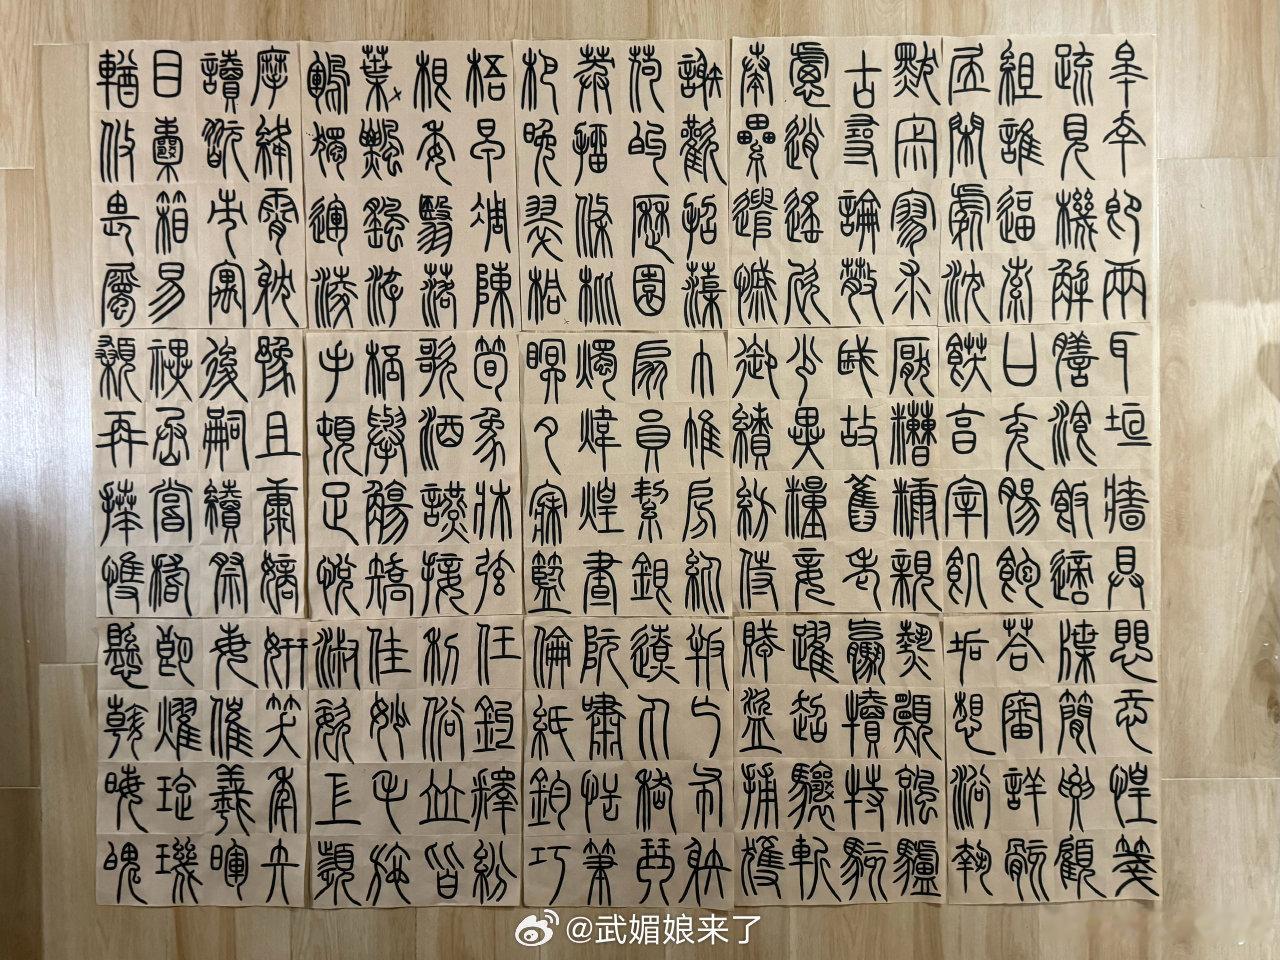 皋幸即兩
疏見機解
組誰逼索
居閒處沈
默寂寥求
古尋論散
慮逍遙欣
奏累遣慼
謝歡招渠
荷的歷園
莽抽條枇
杷晚翠梧
桐早凋陳
根委翳落
葉飄颻游
鵾獨運凌
摩絳霄耽
讀翫市寓
目囊箱易
輶攸畏屬
耳垣牆具
膳飡飯適
口充腸飽
飫烹宰飢
厭糟糠親
戚故舊老
少異糧妾
御績紡侍
巾帷房紈
扇員絜銀
燭煒煌晝
瞑夕寐籃
筍象床弦
歌酒讌接
杯舉觴矯
手頓足悅
豫且康嫡
後嗣續祭
祀烝嘗稽
顙再拜悚
懼恐惶箋
牒簡要顧
答審詳骸
垢想浴執
熱願涼驢
騾犢特駭
躍超驤斬
賊盜捕獲
叛亡布射
遼丸嵇琴
阮嘯恬筆
倫紙鈞巧
任釣釋紛
利俗並皆
佳妙毛施
淑姿工顰
妍笑年矢
每催羲暉
朗曜璇璣
懸斡晦魄
@武媚娘来了